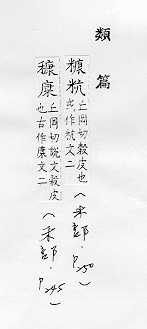 類篇
糠粇
丘岡切穀皮也
作粇文二
(米部.P250)
穅康
丘岡切說文穀皮
也古作康文二
(禾部.P245)